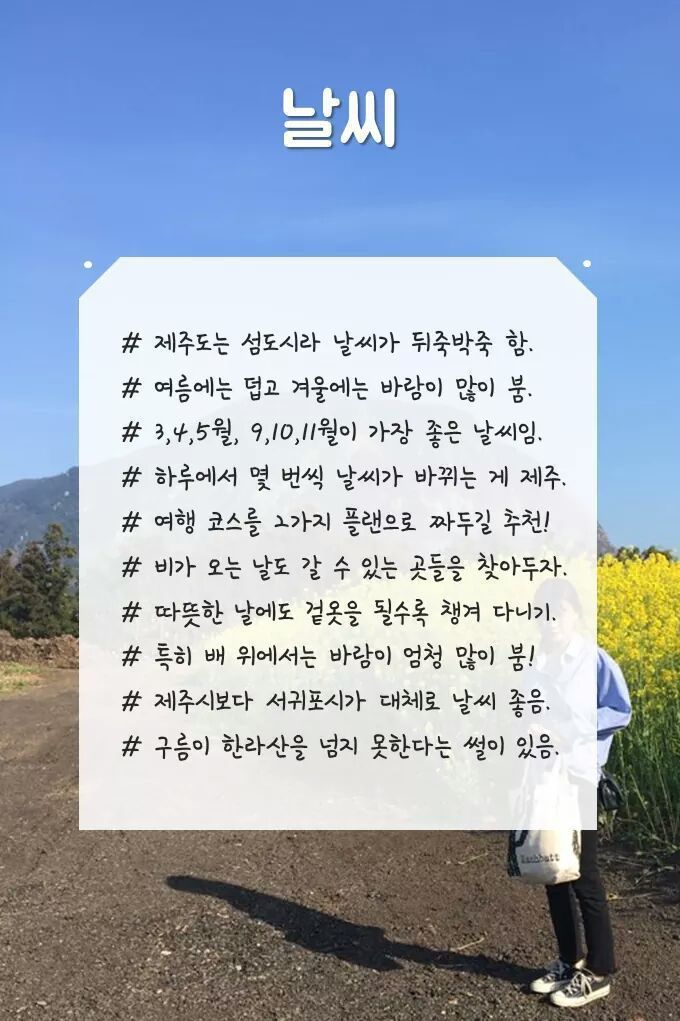 날씨
# 제주도는 섬도시라 날씨가 뒤죽박죽 함.
# 여름에는 덥고 겨울에는 바람이 많이 붐.
# 3,4,5월, 9,10,11월이 가장 좋은 날씨임.
# 하루에서 몇 번씩 날씨가 바뀌는 게 제주.
# 여행 코스를 2가지 플랜으로 짜두길 추천!
# 비가 오는 날도 갈 수 있는 곳들을 찾아두자.
# 따뜻한 날에도 겉옷을 될수록 챙겨 다니기.
# 특히 배 위에서는 바람이 엄청 많이 붐!
# 제주시보다 서귀포시가 대체로 날씨 좋음.
# 구름이 한라산을 넘지 못한다는 썰이 있음.